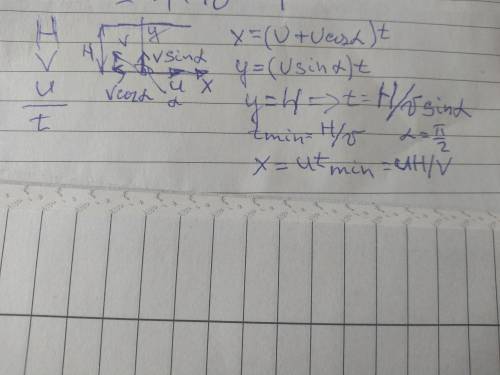 H
V
u
t
H
V
y
Vsinα
Vcosα
u
α
X
x=(U+Ucosα)t
y=(Usinα)t
y=H=>t=H/vsinα
tmin=H/v α=π/2
X=utmin=uH/V